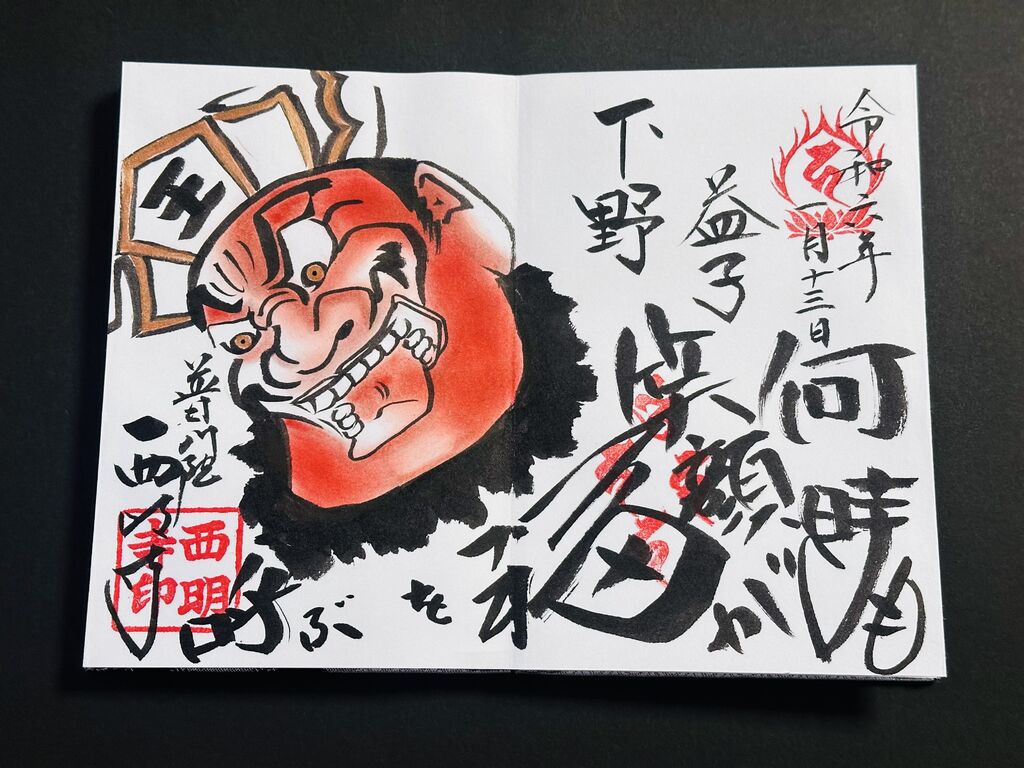 令和六年
一月十三日
下野
益子
何時も
笑顔が
を
呼ぶ
王
普門院
西明寺
西明寺印